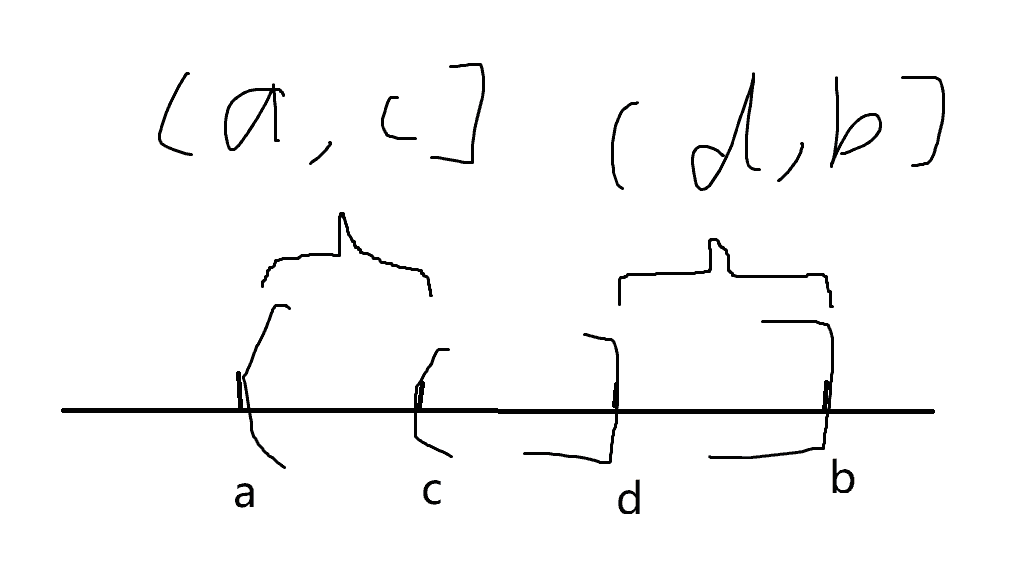 (a, c] (d, b]
a c d b